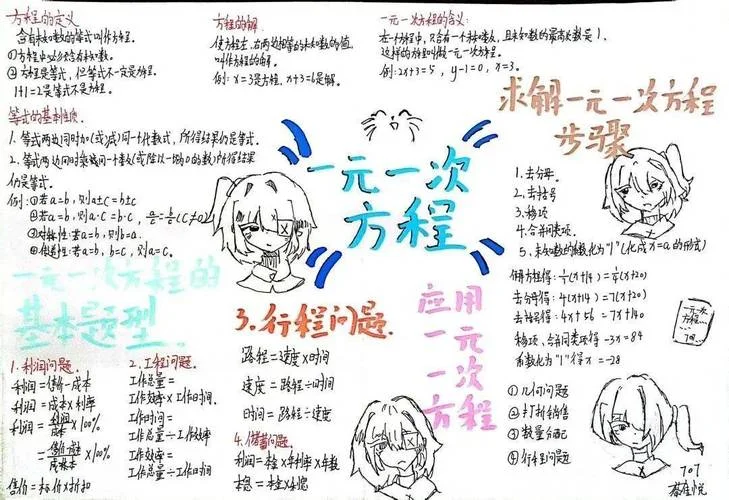 方程的定义
含有未知数的等式叫作方程.
①方程中必须含有未知数.
②方程是等式,但等式不一定是方程.
1+1=2是等式不是方程.
等式的基本性质.
1.等式两边同时加(或减)同一个代数式,所得结果仍是等式.
2.等式两边同时乘同一个数(或除以一個0的数)所得结果
仍是等式.
例:①若a=b,则a±c=b±c
②若a=b,则a·c=b·c,
③对称性:若a=b,则b=a.
④传递性:若a=b,b=c,则a=c.
方程的解
使方程左、右两边相等的未知数的值,
叫作方程的解.
例:x=3是方程,x+3=6是解.
一元一次方程的含义:
在一个方程中,只含有一个未知数,且未知数的最高次数是1,
这样的方程叫做一元一次方程.
例:2x+3=5,y-1=0,x=3.
一元一次
方程
求解一元一次方程
步骤
1.去分母.
2.去括号
3.移项
4.合并同类项.
5、未知数的数化为"1"(化成x=a的形式)
解方程得:
去分母得:4(x+14)=7(x+20)
去括号得:4x+56=7x+140
移项、合并同类项得-3x=84
系数化为"1"得x=-28
一元一次方程的
基本题型.
1.利润问题.
利润=售价-成本
利润=成本×利率
售价=标价×折扣
2.工程问题.
工作总量=
工作效率×工作时间.
工作时间=
工作总量÷工作效率
工作效率=
工作总量÷工作时间
3.行程问题.
路程=速度×时间
速度=路程÷时间
时间=路程÷速度
4.储蓄问题.
利润=本金×年利率×年数
应用
一元
一次
方程
①几何问题
②打折销售
③数量分配
④行程问题
一元一次
方程
707